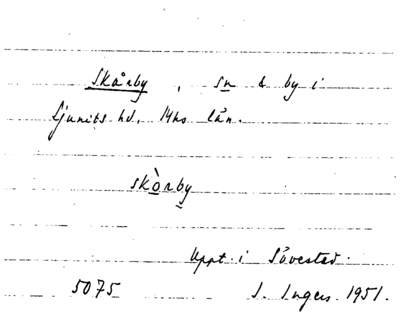 Skårby, sn & by i
Ljunits hd, Mhs län.
skòrby
Uppt. i Sövestad.
5075 I. Ingers 1951.